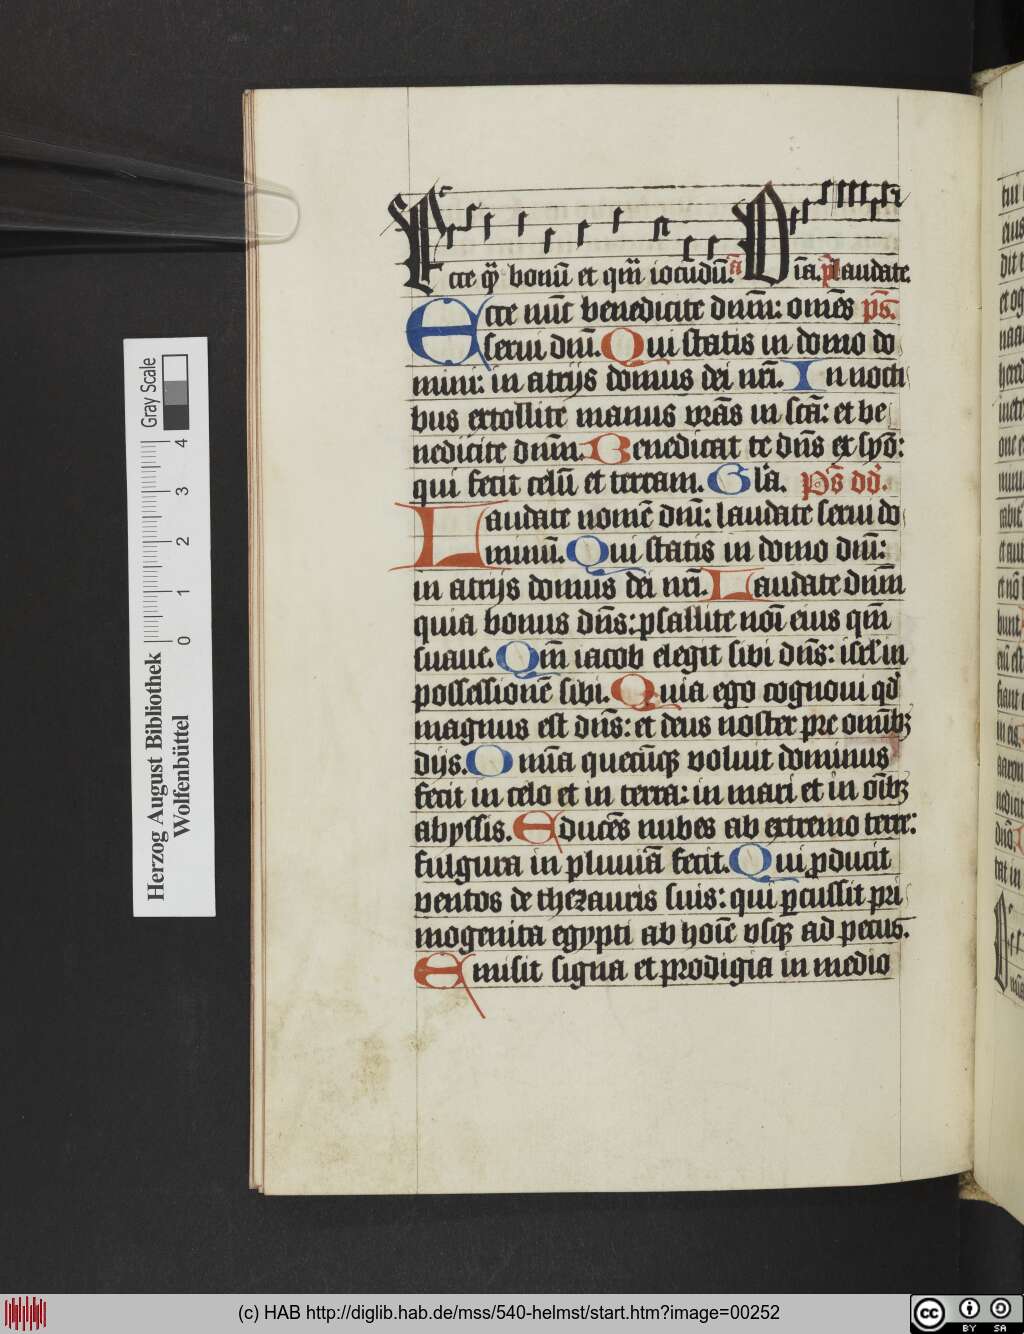 Ecce q̄ bonū et qm̄ iocūdū. a Oīa. plaudate.
Ecce nūc benedicite dnm̄: omēs ps̄.
serui dn̄i. Qui statis in domo do
mini: in atrijs domus dei nr̄i. In nocti
bus extollite manus vrās in sctā: et be
nedicite dnm̄. Benedicat te dn̄s ex syō:
qui fecit celū et terram. Gl'a. Ps̄ dd.
Laudate nomē dn̄i: laudate serui do
minū. Qui statis in domo dn̄i:
in atrijs domus dei nr̄i. Laudate dnm̄
quia bonus dn̄s: psallite noī eius qm̄
suaue. Qm̄ iacob elegit sibi dn̄s: isr̄l in
possessionē sibi. Quia ego cognoui qd
magnus est dn̄s: et deus noster pre omībꝫ
dijs. Omīa quecūqꝫ voluit dominus
fecit in celo et in terra: in mari et in oībꝫ
abyssis. Educēs nubes ab extremo terre:
fulgura in pluuiā fecit. Qui ꝓducit
ventos de thezauris suis: qui ꝑcussit pri
mogenita egypti ab hoīe vsqꝫ ad pecus.
Emisit signa et prodigia in medio
Herzog August Bibliothek
Wolfenbüttel
0 1 2 3 4
Gray Scale
(c) HAB http://diglib.hab.de/mss/540-helmst/start.htm?image=00252
cc BY SA